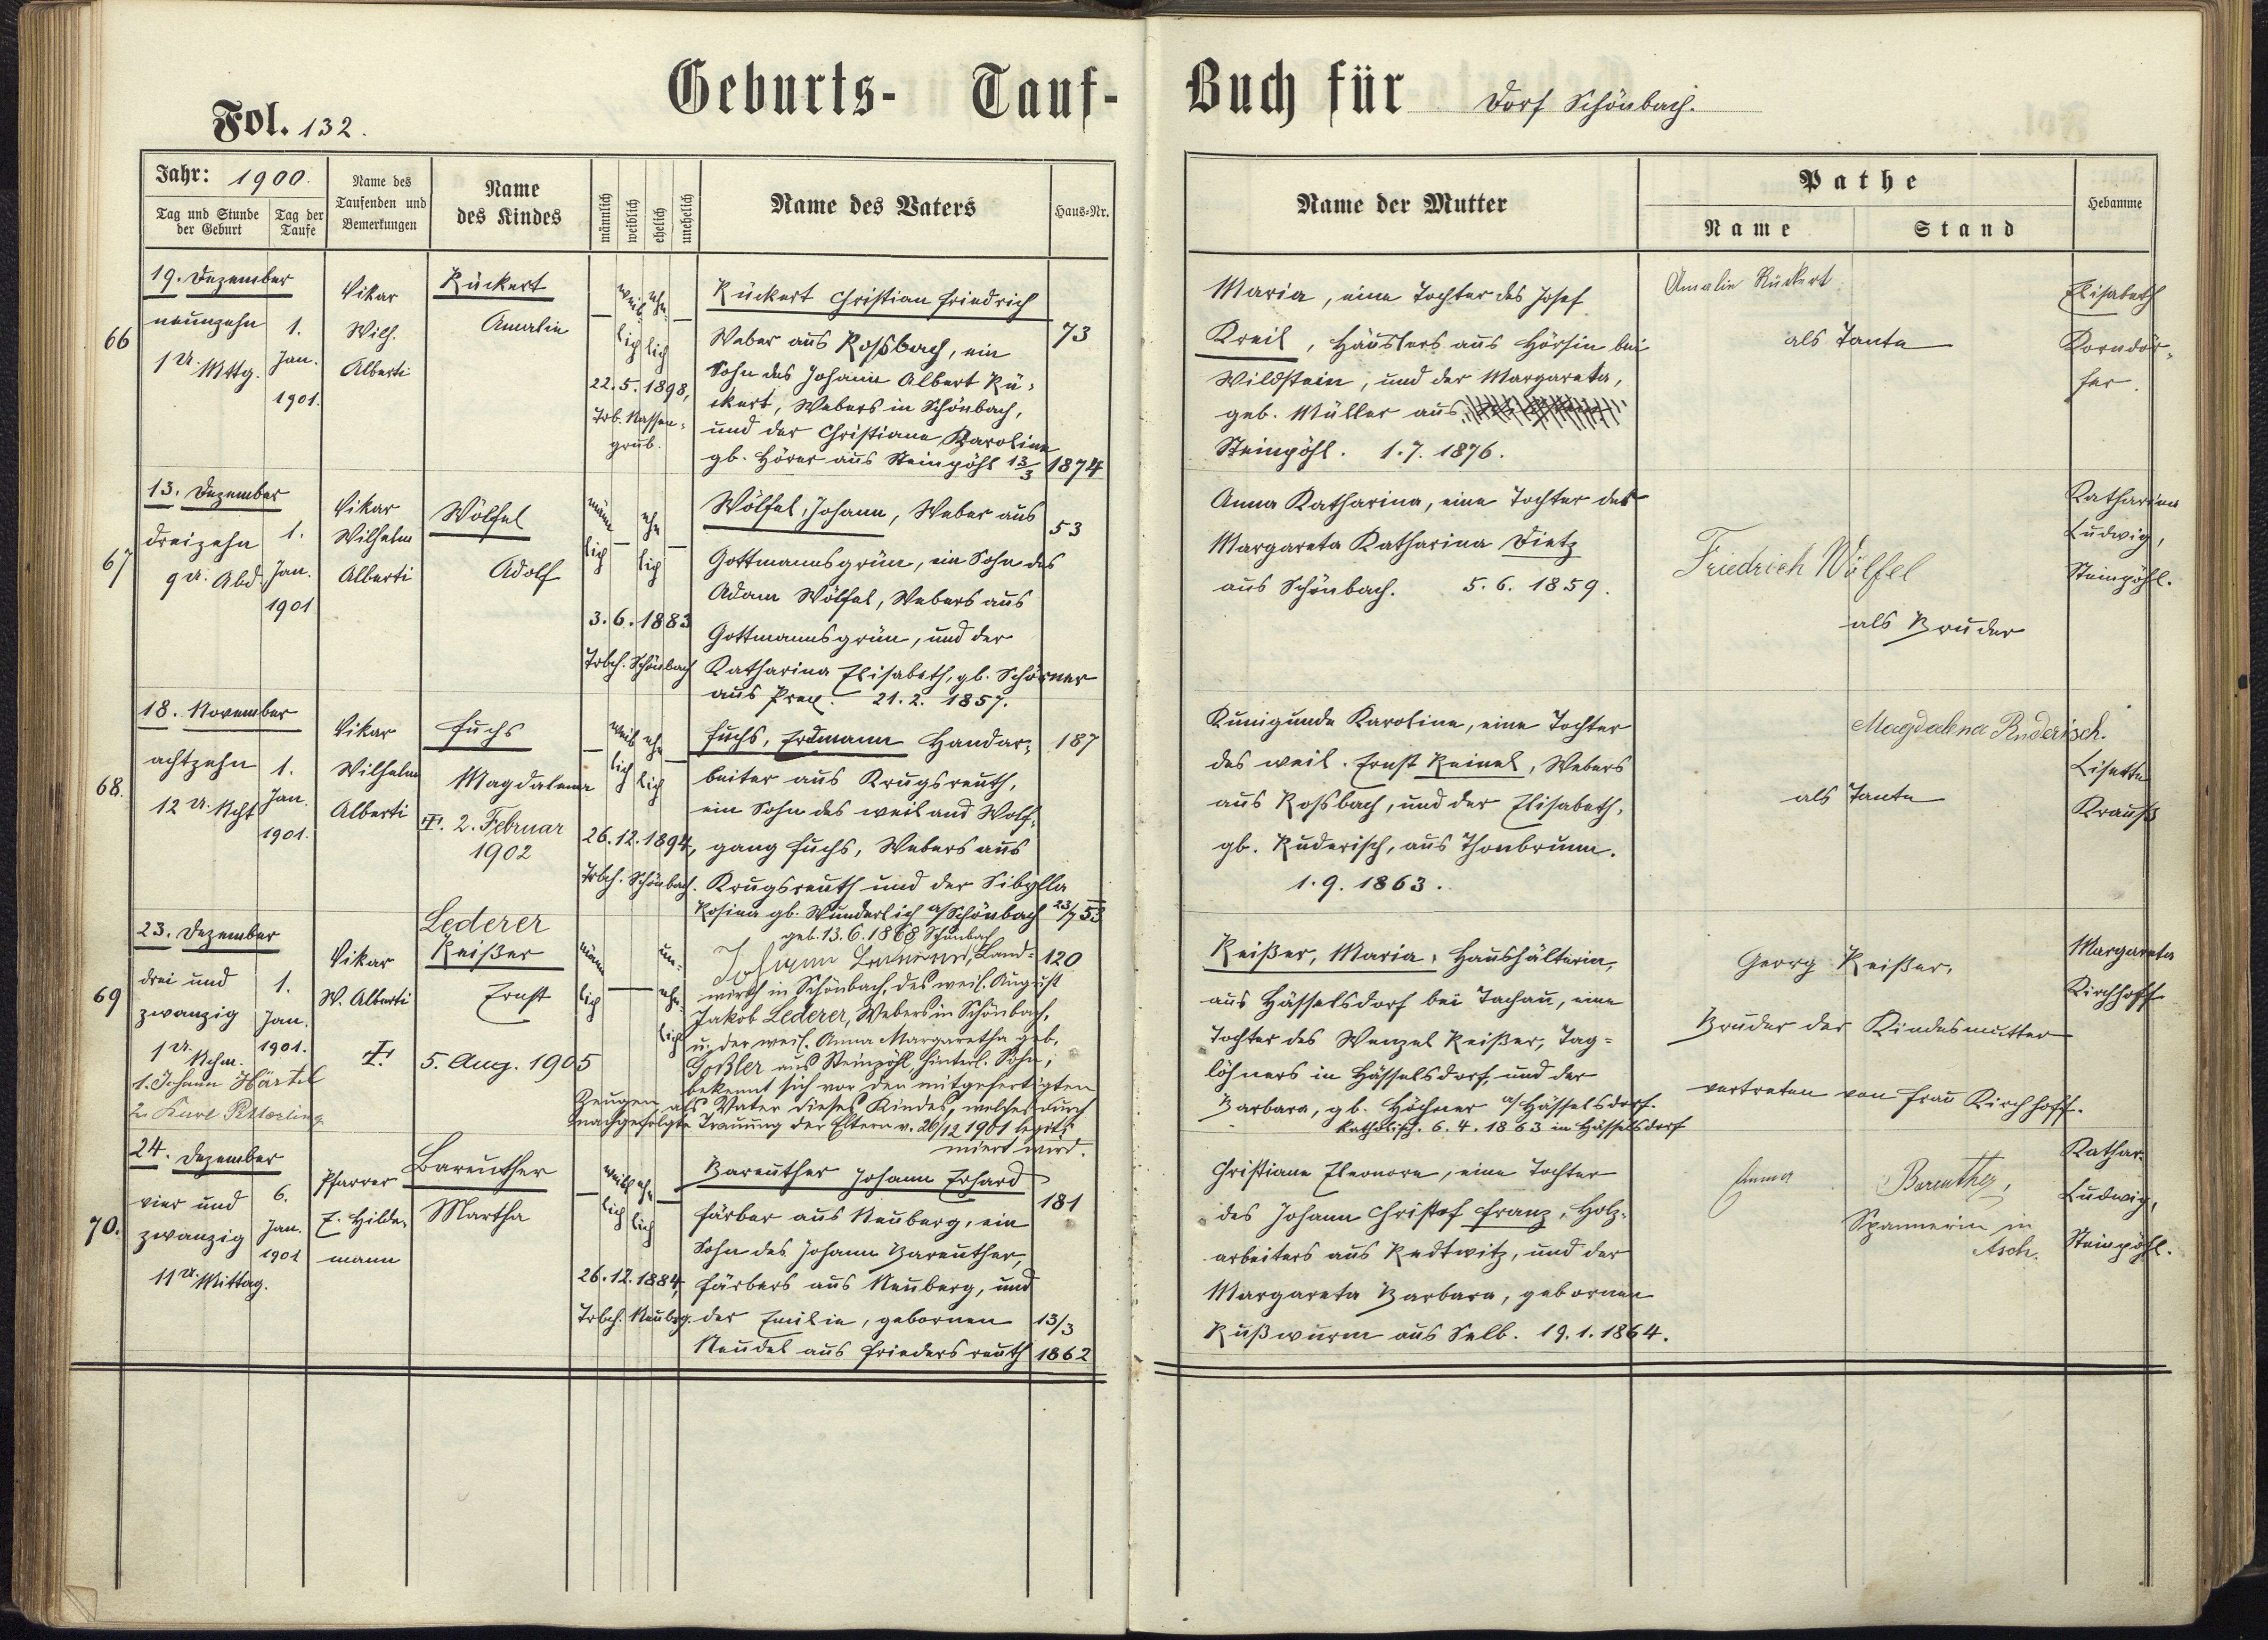 Geburts- Tauf- Buch für Dorf Schönbach.
Fol. 132.
Jahr: 1900.
Tag und Stunde der Geburt
Tag der Taufe
Name des Taufenden und Bemerkungen
Name des Kindes
männlich
weiblich
ehelich
unehelich
Name des Vaters
Haus-Nr.
Name der Mutter
Pathe
Name
Stand
Hebamme
66
19. Dezember
neunzehn
1 U. Mttg.
1.
Jan.
1901.
Vikar
Wilh.
Alberti
Rückert
Amalie
— weib- ehe- —
lich lich
22.5.1898,
Trb. Nassen-
grub.
Rückert Christian Friedrich
Weber aus Roßbach, ein
Sohn des Johann Albert Rü-
ckert, Webers in Schönbach,
und der Christiane Karoline
gb. Hörer aus Steinpöhl 13/3 1874
73
Maria, eine Tochter des Josef
Kreil, Häuslers aus Hörsin bei
Wildstein, und der Margareta,
geb. Müller aus
Steinpöhl. 1.7.1876.
Amalie Rückert
als Tante
Elisabeth
Korndör-
fer.
67
13. Dezember
dreizehn
9 U. Abd.
1.
Jan.
1901
Vikar
Wilhelm
Alberti
Wölfel
Adolf
männ — ehe —
lich lich
3.6.1883
Trbch. Schönbach
Wölfel, Johann, Weber aus
Gottmannsgrün, ein Sohn des
Adam Wölfel, Webers aus
Gottmannsgrün, und der
Katharina Elisabeth, gb. Schörner
aus Prex. 21.2.1857.
53
Anna Katharina, eine Tochter der
Margareta Katharina Dietz
aus Schönbach. 5.6.1859.
Friedrich Wölfel
als Bruder
Katharina
Ludwig,
Steinpöhl.
68.
18. November
achtzehn
12 U. Nchts
1.
Jan.
1901.
Vikar
Wilhelm
Alberti
Fuchs
Magdalena
2. Februar
1902
— weib ehe —
lich lich
26.12.1894,
Trbch. Schönbach.
Fuchs, Erdmann Handar-
beiter aus Krugsreuth,
ein Sohn des weiland Wolf-
gang Fuchs, Webers aus
Krugsreuth und der Sibylla
Rosina gb. Wunderlich a/Schönbach 23/7 53
187
Kunigunde Karoline, eine Tochter
des weil. Ernst Reinel, Webers
aus Roßbach, und der Elisabeth,
gb. Ruderisch, aus Thonbrunn.
1.9.1863.
Magdalena Ruderisch.
als Tante
Lisette
Krauß
69
23. Dezember
drei und
zwanzig
1 U. Nchm.
1. Johann Härtel
2. Karl
1.
Jan.
1901.
Vikar
W. Alberti
Lederer
Reißer
Ernst
5. Aug. 1905
männ — un-
lich ehe-
lich
geb. 13.6.1868 Schönbach
Johann Lederer, Land-
wirth in Schönbach, des weil. August
Jakob Lederer, Webers in Schönbach,
u. der weil. Anna Margaretha geb.
Goßler aus Steinpöhl hinterl. Sohn,
bekennt sich vor den mitgefertigten
Zeugen als Vater dieses Kindes, welches durch
nachgefolgte Trauung der Eltern v. 26/12 1901 legiti-
miert wird.
120
Reißer, Maria, Haushälterin,
aus Hässelsdorf bei Tachau, eine
Tochter des Wenzel Reißer, Tag-
löhners in Hässelsdorf, und der
Barbara, gb. Höchner a/Hässelsdorf.
katholisch. 6.4.1863 in Hässelsdorf
Georg Reißer,
Bruder der Kindesmutter
vertreten von Frau Kirchhoff.
Margareta
Kirchhoff
70.
24. Dezember
vier und
zwanzig
11 U. Mittag.
6.
Jan.
1901
Pfarrer
E. Hilde-
mann
Bareuther
Martha
— weib ehe —
lich lich
26.12.1884,
Trbch. Neubrg.
Bareuther Johann Erhard
Färber aus Neuberg, ein
Sohn des Johann Bareuther,
Färbers aus Neuberg, und
der Emilie, gebornen 13/3
Neudel aus Friedersreuth 1862
181
Christiane Eleonore, eine Tochter
des Johann Christof Franz, Holz-
arbeiters aus Redtwitz, und der
Margareta Barbara, gebornen
Rußwurm aus Selb. 19.1.1864.
Emma Bareuther,
Spannerin in
Asch.
Kathar.
Ludwig,
Steinpöhl.